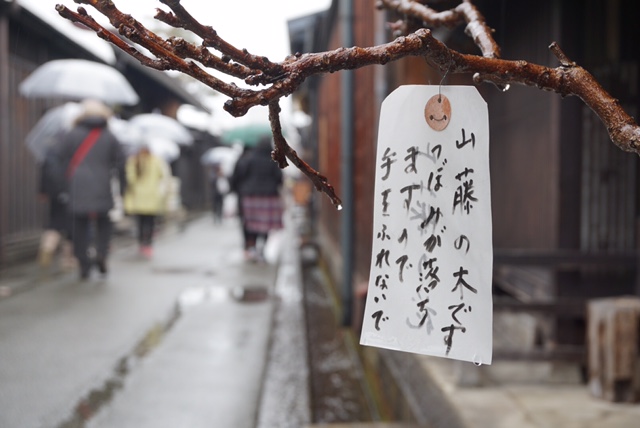 山藤の木です
つぼみが落ち
ますので
手をふれないで